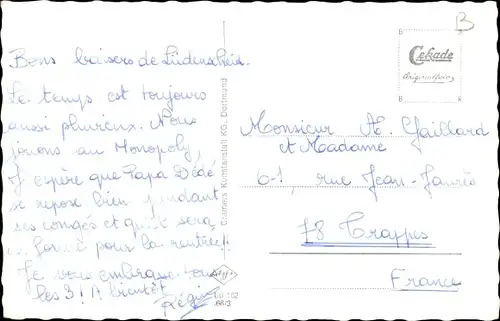 Bons baisers de Lüdenscheid.
Le temps est toujours
aussi plurieux. Nous
jouons au Monopoly,
J'espère que Papa Dédé
se repose bien pendant
ses congés et qu'il sera
en forme pour la rentrée!!
Je vous embrasse tous
les 3! A bientôt
Régis
Cramers Kunstanstalt KG., Dortmund
Lü 102
66/3
B
Cekade
Originalfoto
Monsieur A. Gaillard
et Madame
61, rue Jean-Jaurès
78 Trappes
France